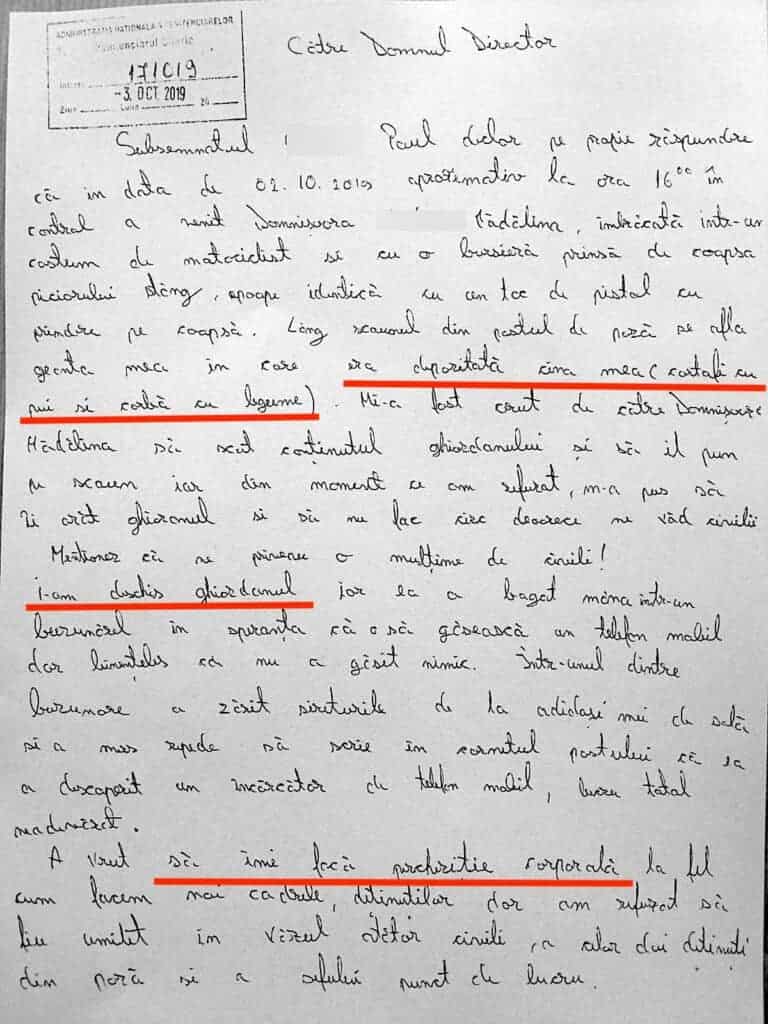 ADMINISTRAȚIA NAȚIONALĂ A PENITENCIARELOR
Penitenciarul
171019
-3. OCT 2019
Ziua Luna 20
Către Domnul Director
Subsemnatul Paul declar pe propie răspundre
că in data de 02.10.2019 aproximativ la ora 16⁰⁰ în
control a venit Domnișoara Mădălina, îmbrăcată intr-un
costum de motociclist si cu o bursieră prinsă de coapsa
piciorului stâng, apoape identică cu un toc de pistol cu
prindre pe coapsă. Lâng scaunul din postul de pază se afla
geanta mea in care era depozitată cina mea (cartofi cu
pui si ciorbă cu legume). Mi-a fost cerut de către Domnișoara
Mădălina să scot conținutul ghiozdanului și să il pun
pe scaun iar din moment ce am refuzat, m-a pus să
îi arăt ghiozanul si să nu fac circ deorece ne văd civilii
Mentionez că ne priveau o mulțime de civili!
I-am deschis ghiozdanul iar ea a bagat mâna intr-un
buzunărel în speranța că o să găsească un telefon mobil
dar bineînțeles că nu a găsit nimic. Într-unul dintre
buzunare a zărit șireturile de la adidași mei de sală
si a mers repede să scrie în carnetul postului că ea
a descoperit un încărcător de telefon mobil, lucru total
neadevărat.
A vrut să îmi facă perchiziție corporală la fel
cum facem noi cadrele, ditinutilor dar am refuzat să
fiu umilit in văzul atâtor civili, a celor doi ditinuți
din pază si a sefului punct de lucru.